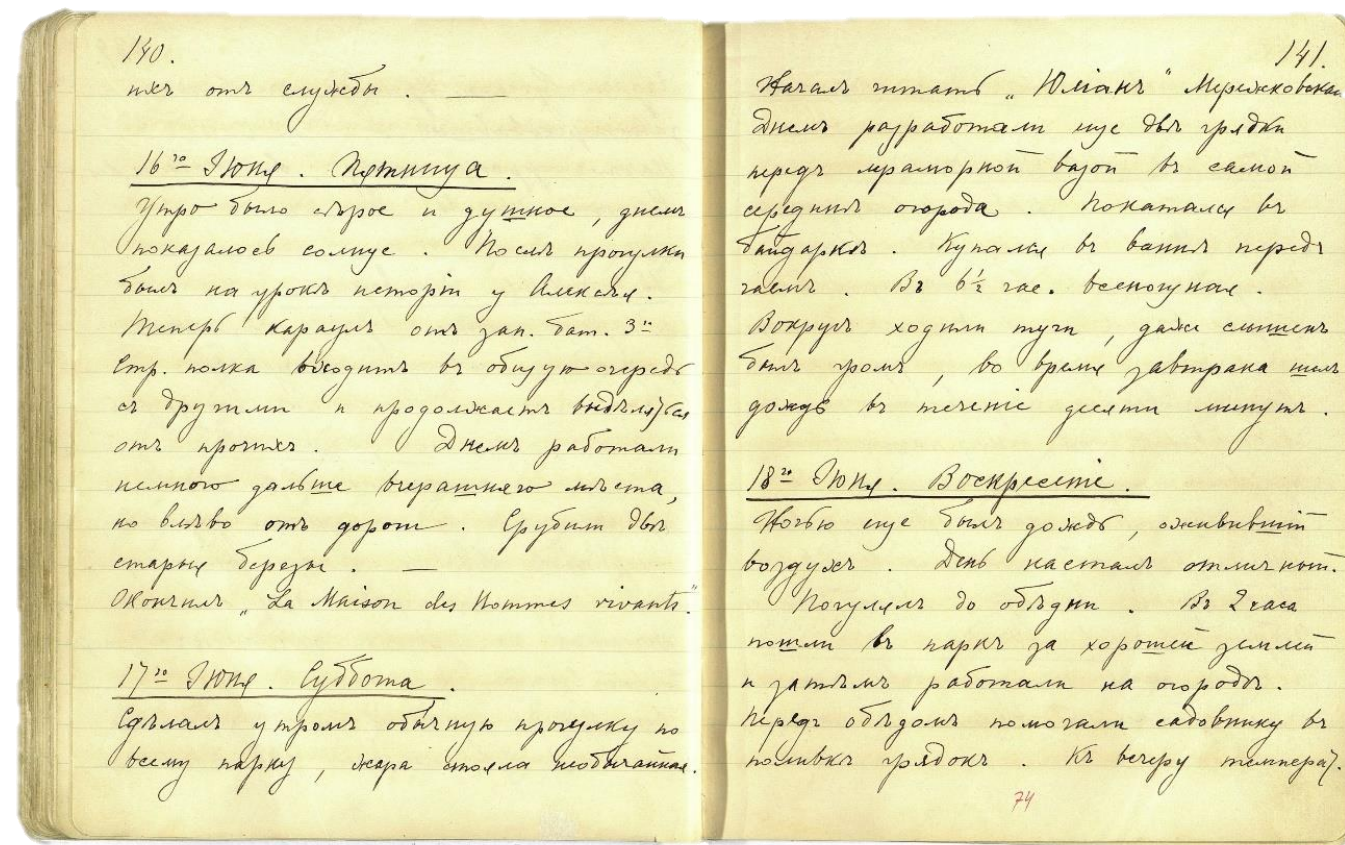 140.
нихъ отъ службы. —
16го Іюня. Пятница.
Утро было сѣрое и душное, днемъ
показалось солнце. Послѣ прогулки
былъ на урокѣ исторіи у Алексѣя.
Теперь караулъ отъ зап. бат. 3го
Стр. полка входитъ въ общую очередь
съ другими и продолжаетъ выдѣляться
отъ прочихъ. Днемъ работали
немного дальше вчерашняго мѣста,
но влѣво отъ дороги. Срубили двѣ
старыя березы. —
Окончилъ „La Maison des Hommes vivants."
17го Іюня. Суббота.
Сдѣлалъ утромъ обычную прогулку по
всему парку, жара стояла необычайная.
141.
Началъ читать „Юліанъ" Мережковскаго
Днемъ разработали еще двѣ грядки
передъ мраморной вазой въ самой
серединѣ огорода. Покатался въ
байдаркѣ. Купался въ ваннѣ передъ
чаемъ. Въ 6½ час. всенощная.
Вокругъ ходили тучи, даже слышенъ
былъ громъ, во время завтрака шелъ
дождь въ теченіе десяти минутъ.
18го Іюня. Воскресеніе.
Ночью еще былъ дождь, оживившій
воздухъ. День насталъ отличный.
Погуляли до обѣдни. Въ 2 часа
пошли въ паркъ за хорошей землей
и затѣмъ работали на огородѣ.
Передъ обѣдомъ помогали садовнику въ
поливкѣ грядокъ. Къ вечеру температ.
74